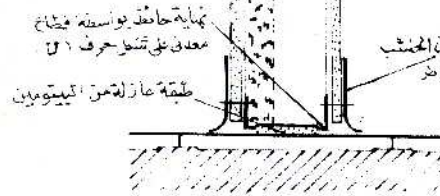 نهاية حائط بواسطة قطاع
معدني على شكل حرف
طبقة عازلة من البيتومين
الخشب